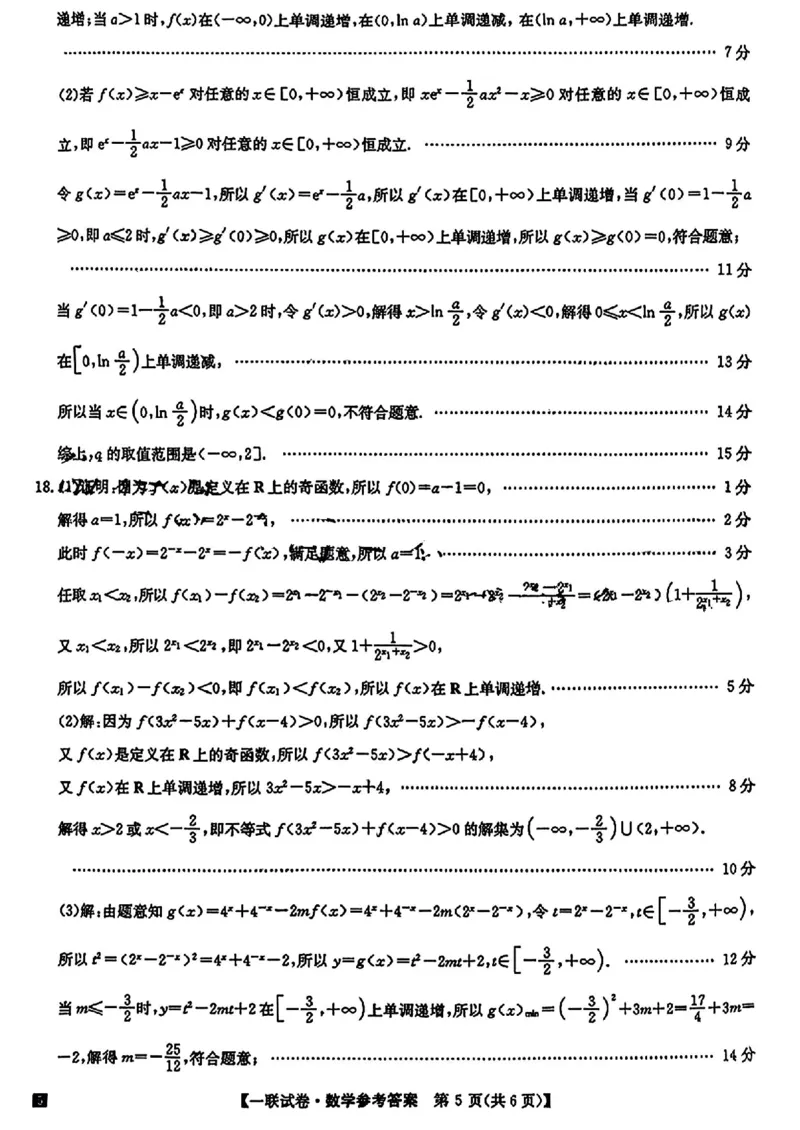 递增;当a>1时,f(x)在(-∞,0)上单调递增,在(0,ln a)上单调递减, 在(ln a,+∞)上单调递增.
7分
(2)若f(x)≥x-eˣ对任意的x∈[0,+∞)恒成立,即xeˣ-1/2ax²-x≥0对任意的x∈[0,+∞)恒成
立,即eˣ-1/2ax-1≥0对任意的x∈[0,+∞)恒成立. 9分
令g(x)=eˣ-1/2ax-1,所以g′(x)=eˣ-1/2a,所以g′(x)在[0,+∞)上单调递增,当g′(0)=1-1/2a
≥0,即a≤2时,g′(x)≥g′(0)≥0,所以g(x)在[0,+∞)上单调递增,所以g(x)≥g(0)=0,符合题意;
11分
当g′(0)=1-1/2a<0,即a>2时,令g′(x)>0,解得x>ln a/2,令g′(x)<0,解得0≤x<ln a/2,所以g(x)
在[0,ln a/2)上单调递减, 13分
所以当x∈(0,ln a/2)时,g(x)<g(0)=0,不符合题意. 14分
综上,a的取值范围是(-∞,2]. 15分
18.(1)证明:因为f(x)是定义在R上的奇函数,所以f(0)=a-1=0, 1分
解得a=1,所以f(x)=2ˣ-2⁻ˣ, 2分
此时f(-x)=2⁻ˣ-2ˣ=-f(x),满足题意,所以a=1. 3分
任取x₁<x₂,所以f(x₁)-f(x₂)=2^x₁-2^-x₁-(2^x₂-2^-x₂)=
又x₁<x₂,所以2^x₁<2^x₂,即2^x₁-2^x₂<0,又1+1/2^(x₁+x₂)>0,
所以f(x₁)-f(x₂)<0,即f(x₁)<f(x₂),所以f(x)在R上单调递增. 5分
(2)解:因为f(3x²-5x)+f(x-4)>0,所以f(3x²-5x)>-f(x-4),
又f(x)是定义在R上的奇函数,所以f(3x²-5x)>f(-x+4),
又f(x)在R上单调递增,所以3x²-5x>-x+4, 8分
解得x>2或x<-2/3,即不等式f(3x²-5x)+f(x-4)>0的解集为(-∞,-2/3)∪(2,+∞).
10分
(3)解:由题意知g(x)=4ˣ+4⁻ˣ-2mf(x)=4ˣ+4⁻ˣ-2m(2ˣ-2⁻ˣ),令t=2ˣ-2⁻ˣ,t∈[-3/2,+∞),
所以t²=(2ˣ-2⁻ˣ)²=4ˣ+4⁻ˣ-2,所以y=g(x)=t²-2mt+2,t∈[-3/2,+∞). 12分
当m≤-3/2时,y=t²-2mt+2在[-3/2,+∞)上单调递增,所以g(x)min=(-3/2)²+3m+2=17/4+3m=
-2,解得m=-25/12,符合题意; 14分
【一联试卷·数学参考答案 第5页(共6页)】